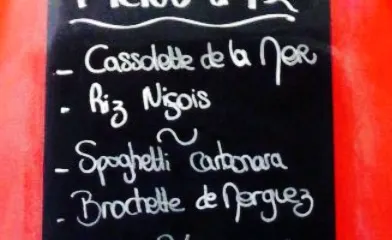 - Cassolette de la Mer
- Riz Niçois
~
- Spaghetti Carbonara
- Brochette de Merguez